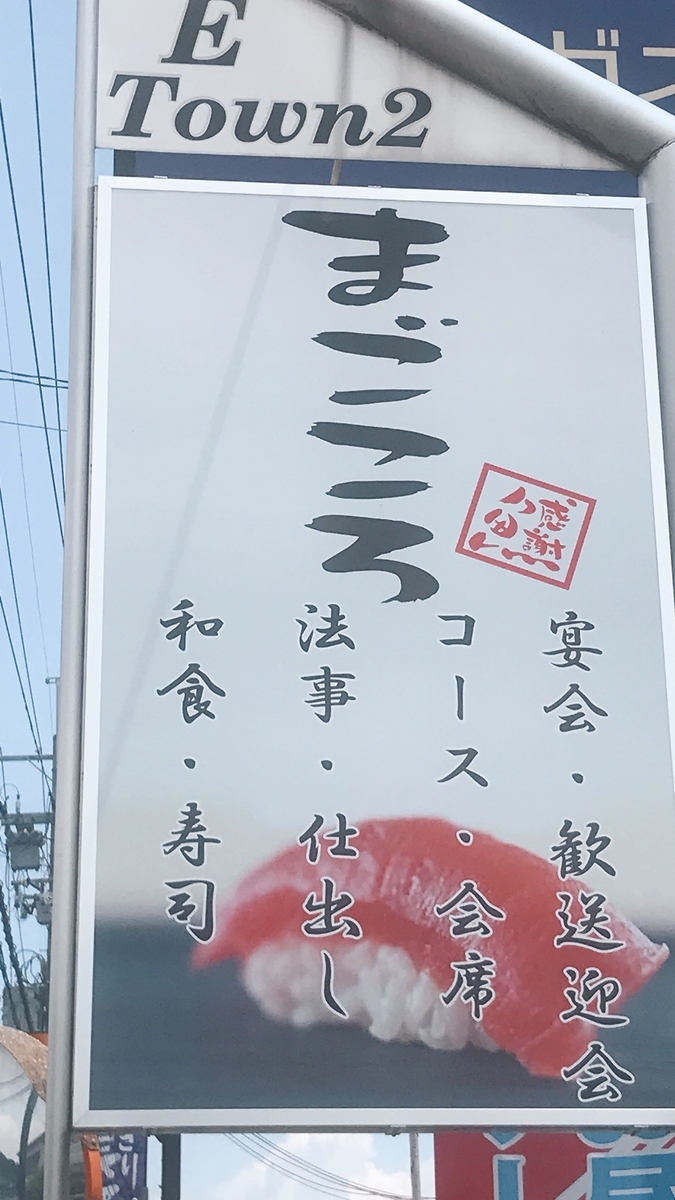 E
Town2
まごころ
感謝
宴会・歓送迎会
コース・会席
法事・仕出し
和食・寿司